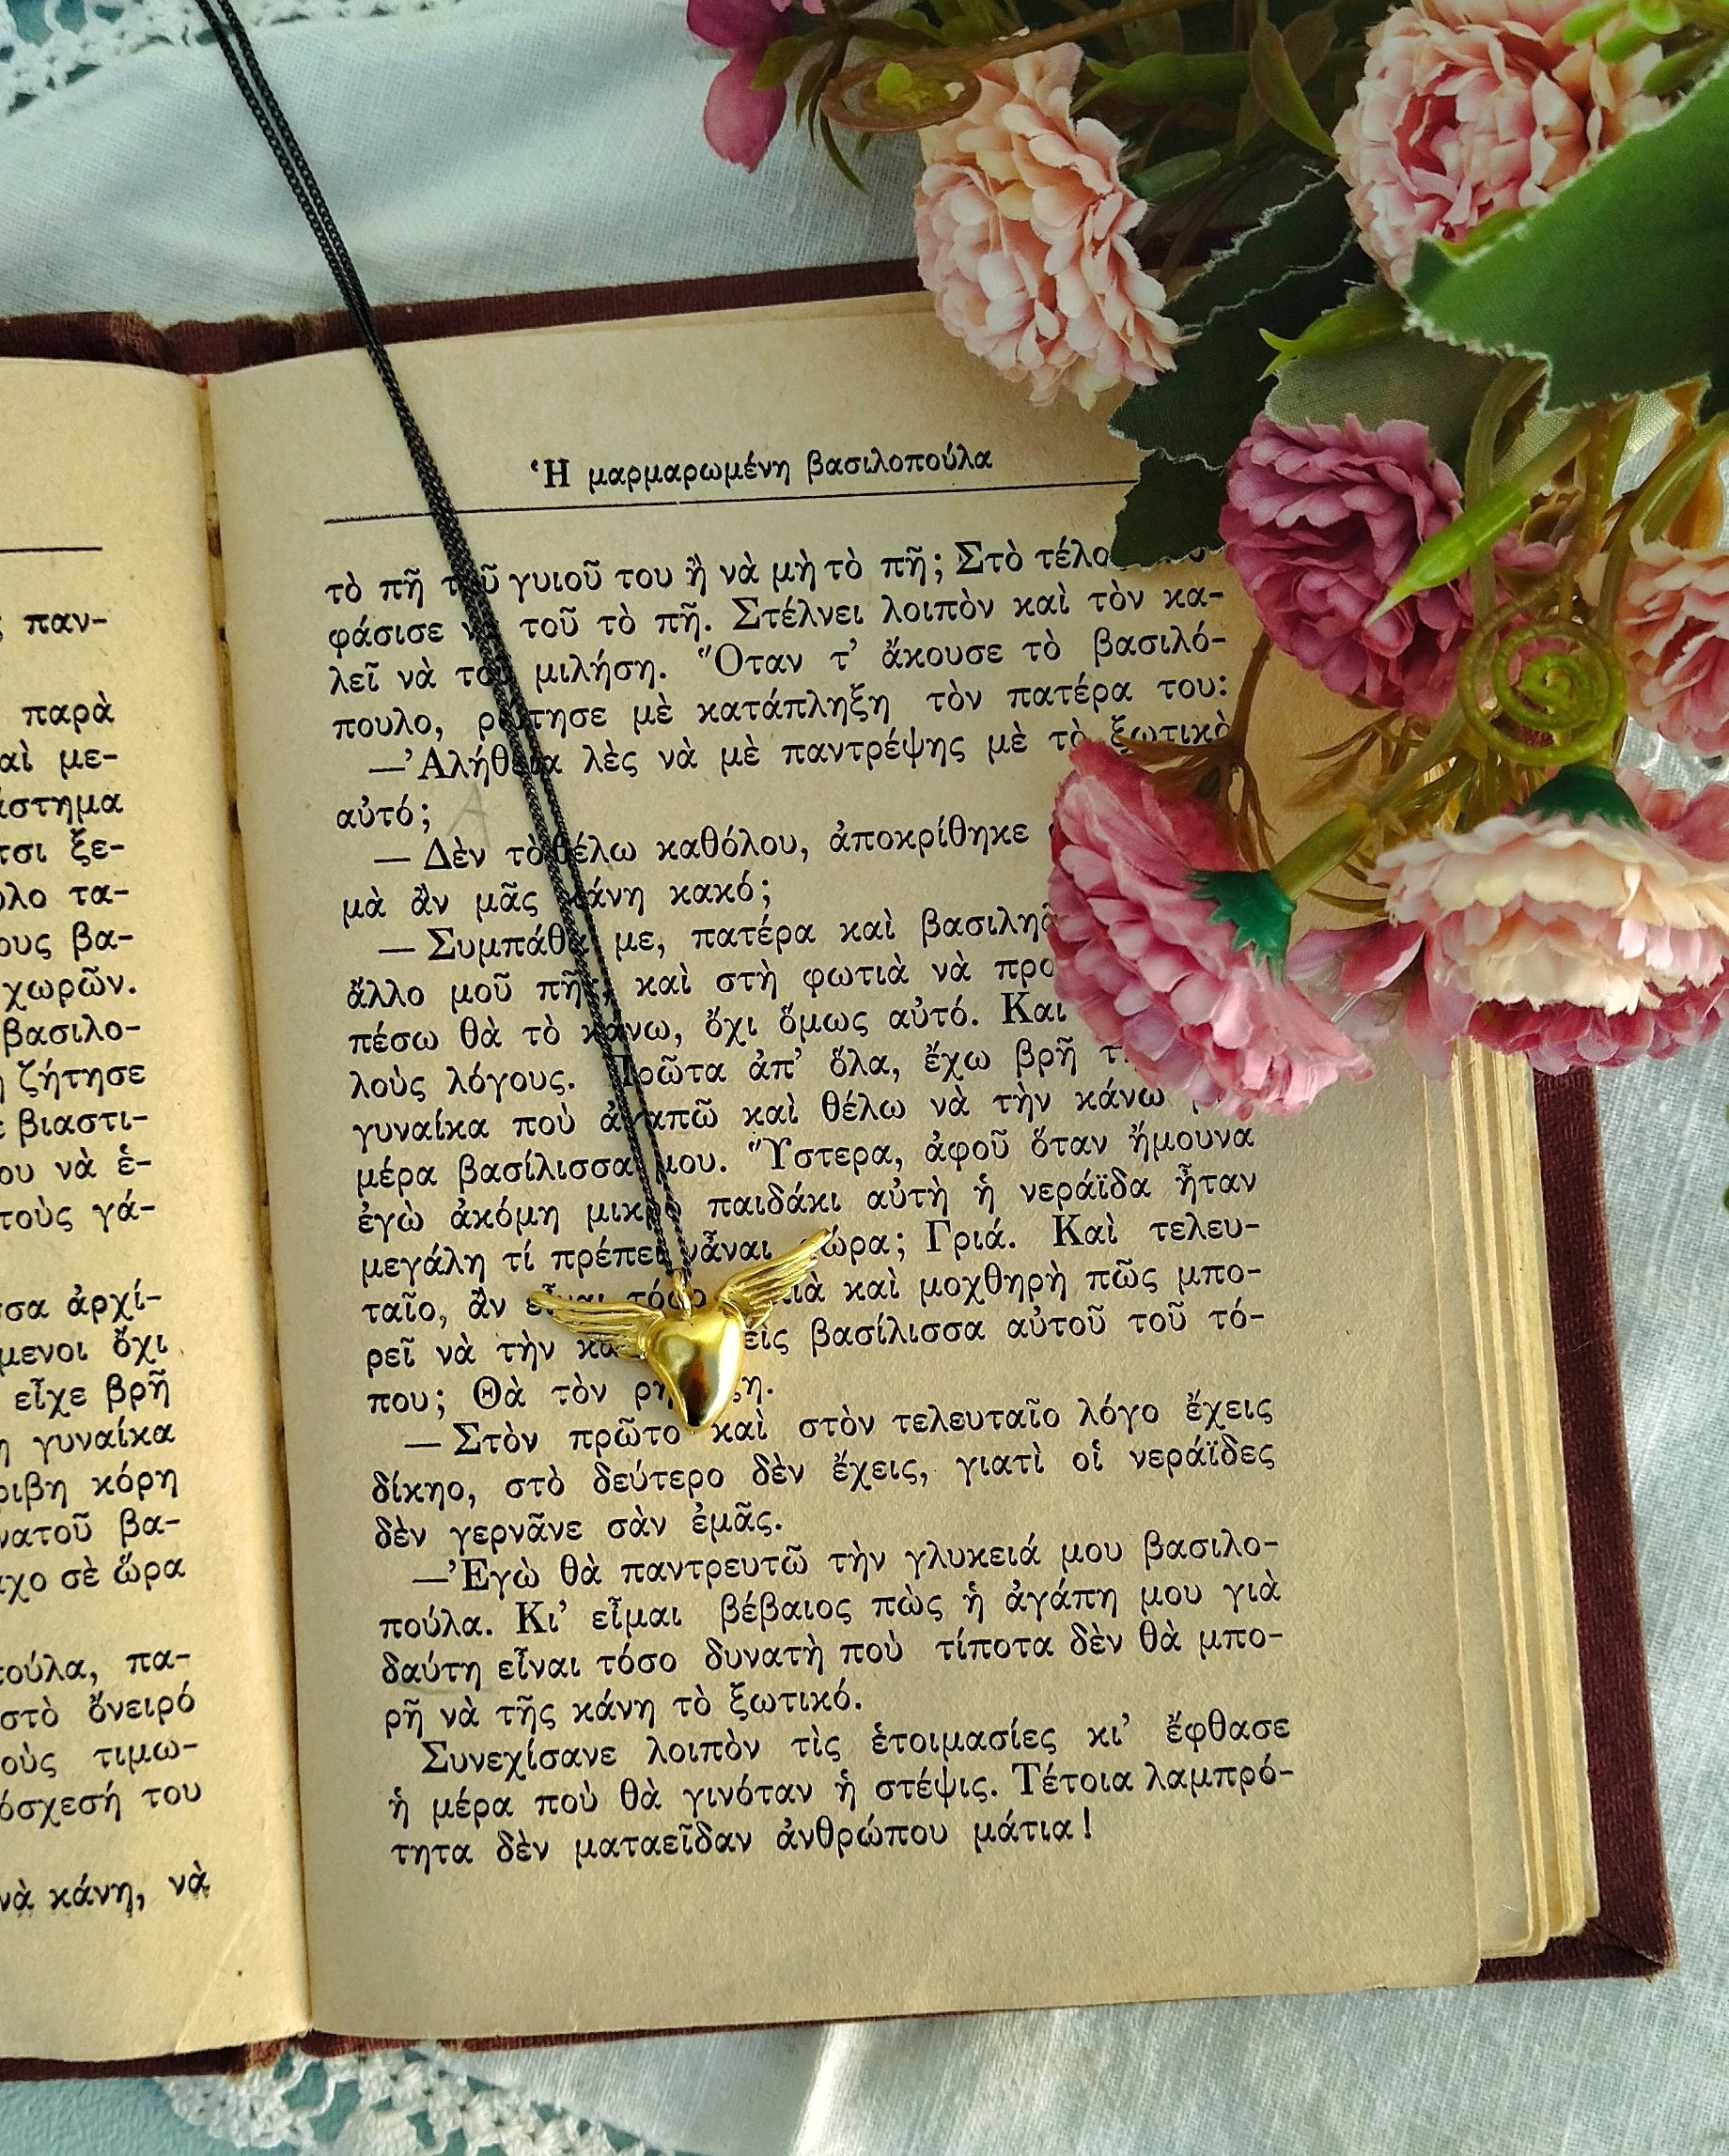 ς παν-
παρὰ
αὶ με-
άστημα
τσι ξε-
υλο τα-
ους βα-
χωρῶν.
βασιλο-
η ζήτησε
ε βιαστι-
ου νὰ ἑ-
τοὺς γά-
σσα ἀρχί-
μενοι ὄχι
εἶχε βρῆ
η γυναίκα
ριβη κόρη
νατοῦ βα-
αχο σὲ ὥρα
πούλα, πα-
στὸ ὄνειρό
οὺς τιμω-
όσχεσή του
νὰ κάνη, νὰ
Ἡ μαρμαρωμένη βασιλοπούλα
τὸ πῆ τοῦ γυιοῦ του ἢ νὰ μὴ τὸ πῆ; Στὸ τέλο
φάσισε νὰ τοῦ τὸ πῆ. Στέλνει λοιπὸν καὶ τὸν κα-
λεῖ νὰ τοῦ μιλήση. Ὅταν τ' ἄκουσε τὸ βασιλό-
πουλο, ρώτησε μὲ κατάπληξη τὸν πατέρα του:
—Ἀλήθεια λὲς νὰ μὲ παντρέψης μὲ τὸ ξωτικὸ
αὐτό;
— Δὲν τὸ θέλω καθόλου, ἀποκρίθηκε
μὰ ἂν μᾶς κάνη κακό;
— Συμπάθα με, πατέρα καὶ βασιληᾶ
ἄλλο μοῦ πῆς, καὶ στὴ φωτιὰ νὰ προ
πέσω θὰ τὸ κάνω, ὄχι ὅμως αὐτό. Και
λοὺς λόγους. Πρῶτα ἀπ' ὅλα, ἔχω βρῆ τ
γυναίκα ποὺ ἀγαπῶ καὶ θέλω νὰ τὴν κάνω
μέρα βασίλισσα μου. Ὕστερα, ἀφοῦ ὅταν ἤμουνα
ἐγὼ ἀκόμη μικρὸ παιδάκι αὐτὴ ἡ νεράϊδα ἦταν
μεγάλη τί πρέπει νἆναι τώρα; Γριά. Καὶ τελευ-
ταῖο, ἂν εἶναι τόσο καὶ μοχθηρὴ πῶς μπο-
ρεῖ νὰ τὴν κά εἰς βασίλισσα αὐτοῦ τοῦ τό-
που; Θὰ τὸν ρη ξη.
— Στὸν πρῶτο καὶ στὸν τελευταῖο λόγο ἔχεις
δίκηο, στὸ δεύτερο δὲν ἔχεις, γιατὶ οἱ νεράϊδες
δὲν γερνᾶνε σὰν ἐμᾶς.
—Ἐγὼ θὰ παντρευτῶ τὴν γλυκειά μου βασιλο-
πούλα. Κι' εἶμαι βέβαιος πὼς ἡ ἀγάπη μου γιὰ
δαύτη εἶναι τόσο δυνατὴ ποὺ τίποτα δὲν θὰ μπο-
ρῆ νὰ τῆς κάνη τὸ ξωτικό.
Συνεχίσανε λοιπὸν τὶς ἑτοιμασίες κι' ἔφθασε
ἡ μέρα ποὺ θὰ γινόταν ἡ στέψις. Τέτοια λαμπρό-
τητα δὲν ματαεῖδαν ἀνθρώπου μάτια!